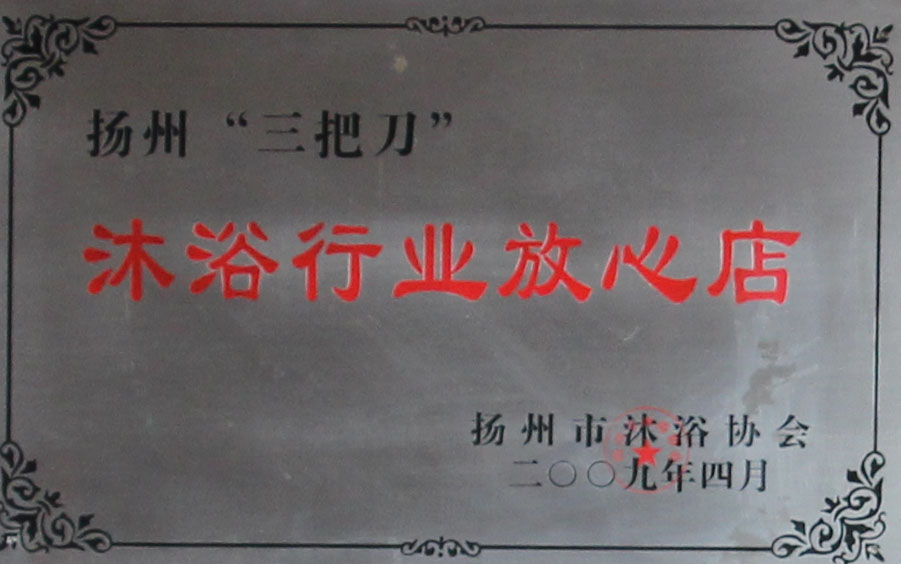 扬州“三把刀”
沐浴行业放心店
扬州市沐浴协会
二〇〇九年四月